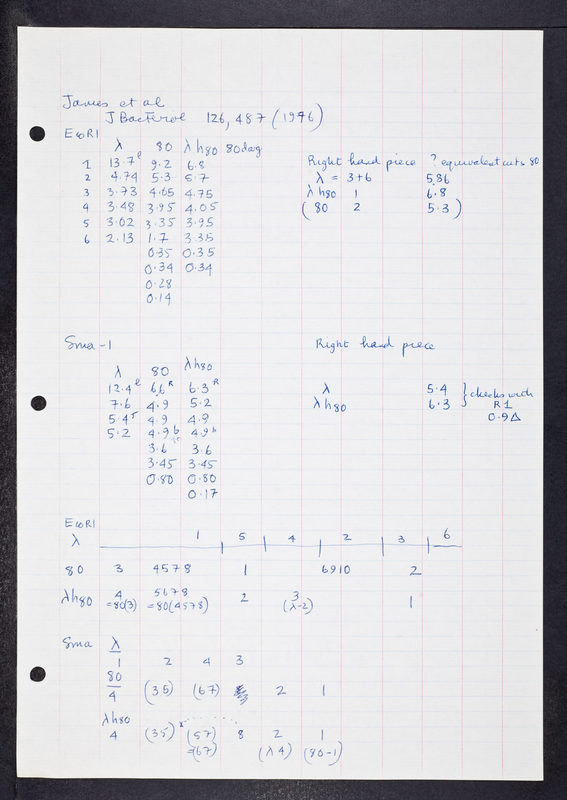 James et al
J Bacteriol 126, 487 (1976)
EcoRI
λ 80 λh80 80dag
1 13.7ᵉ 9.2 6.8
2 4.74 5.3 5.7
3 3.73 4.65 4.75
4 3.48 3.95 4.05
5 3.02 3.35 3.95
6 2.13 1.7 3.35
0.35 0.35
0.34 0.34
0.28
0.14
Right hand piece ? equivalent cuts 80
λ = 3+6 5.86
λh80 1 6.8
( 80 2 5.3 )
Sma-1
λ 80 λh80
12.4ᵉ 6.6ᴿ 6.3ᴿ
7.6 4.9 5.2
5.4ʳ 4.9 4.9
5.2 4.9ᵇ 4.9ᵇ
3.6 3.6
3.45 3.45
0.80 0.80
0.17
Right hand piece
λ 5.4
λh80 6.3
} checks with
R1
0.9Δ
EcoRI
λ 1 5 4 2 3 6
80 3 4578 1 6910 2
λh80 4 5678 2 3 1
=80(3) =80(4578) (λ-2)
Sma λ
1 2 4 3
80
4 (35) (67) 2 1
λh80
4 (35) (57) 8 2 1
=(67) (λ4) (80-1)